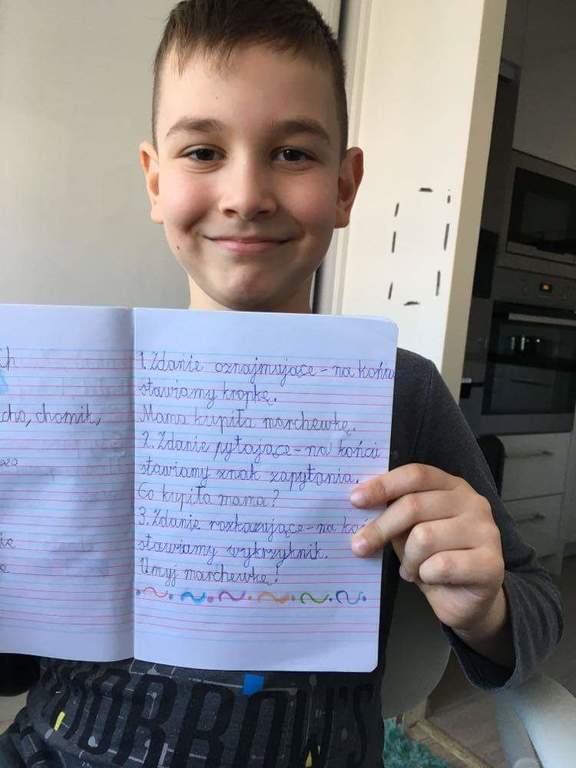 cho, chomik,
1. Zdanie oznajmujące - na końcu
stawiamy kropkę.
Mama kupiła marchewkę.
2. Zdanie pytające - na końcu
stawiamy znak zapytania.
Co kupiła mama?
3. Zdanie rozkazujące - na
stawiamy wykrzyknik.
Umyj marchewkę!